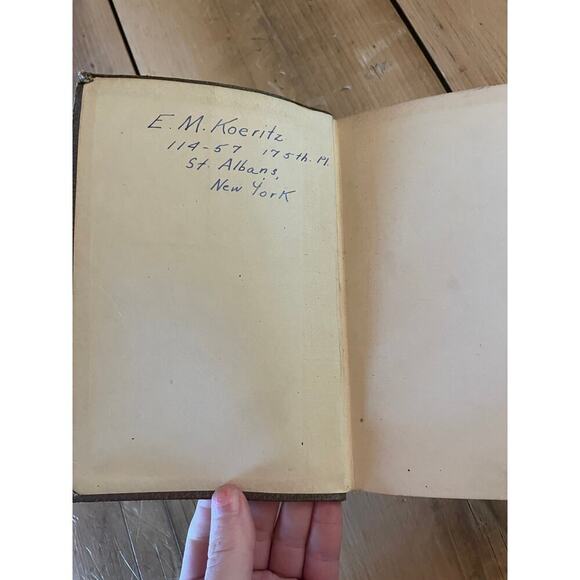 E. M. Koeritz
114-57 175th. Pl.
St. Albans,
New York